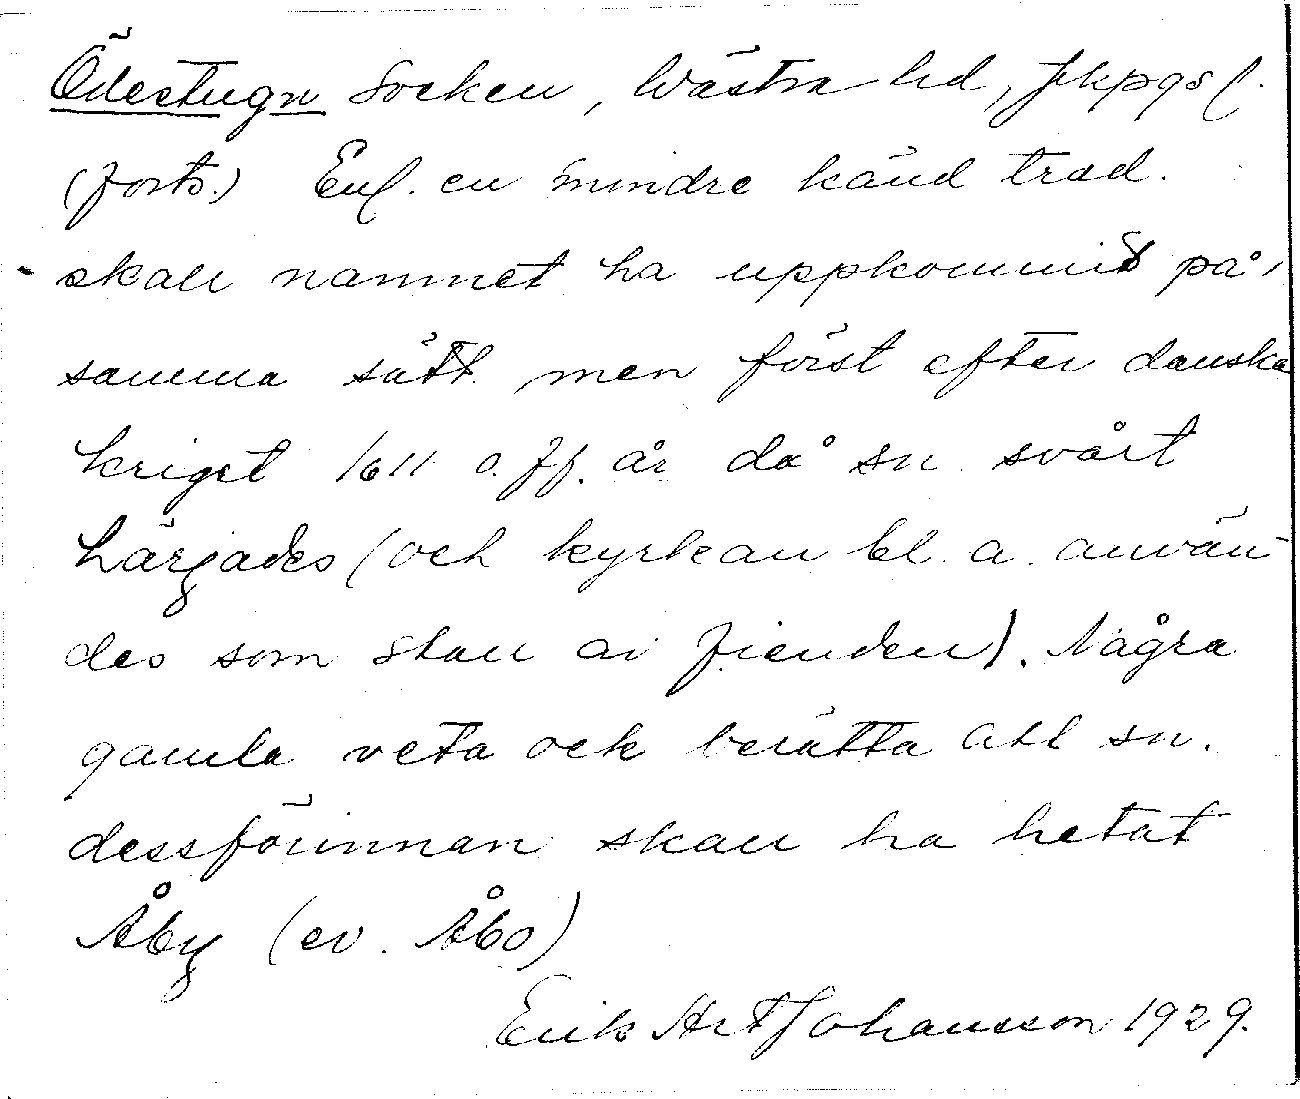 Ödestugn Socken, Västra hd, Jkpgs l.
(forts.) Enl. en mindre känd trad.
skall namnet ha uppkommit på
samma sätt men först efter danska
kriget 1611 o. ff. år då sn svårt
härjades (och kyrkan bl. a. använ-
des som stall av fienden). Några
gamla veta och berätta att sn.
dessförinnan skall ha hetat
Åby (ev. Åbo)
Erik Johansson 1929.